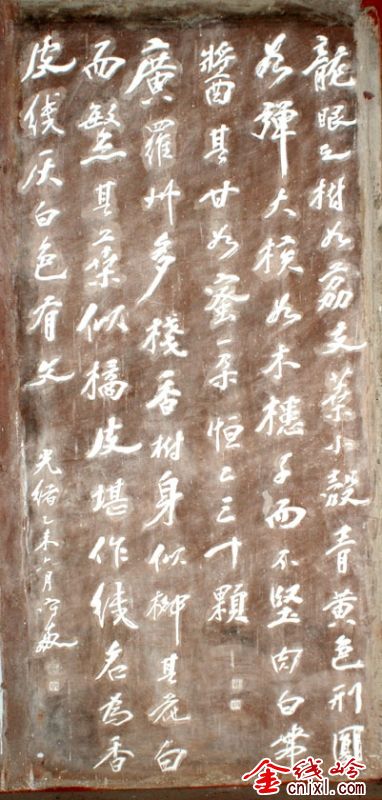 龍眼之樹如荔支葉小殼青黃色形圓
如彈大核如木槵子而不堅肉白帶
醬其甘如蜜一朵恒二三十顆
廣羅州多棧香樹身似柳其花白
而繁其葉似橘皮堪作綫名為香
皮綫灰白色有文
光緒乙未六月守敬
金线岭
cnjxl.com